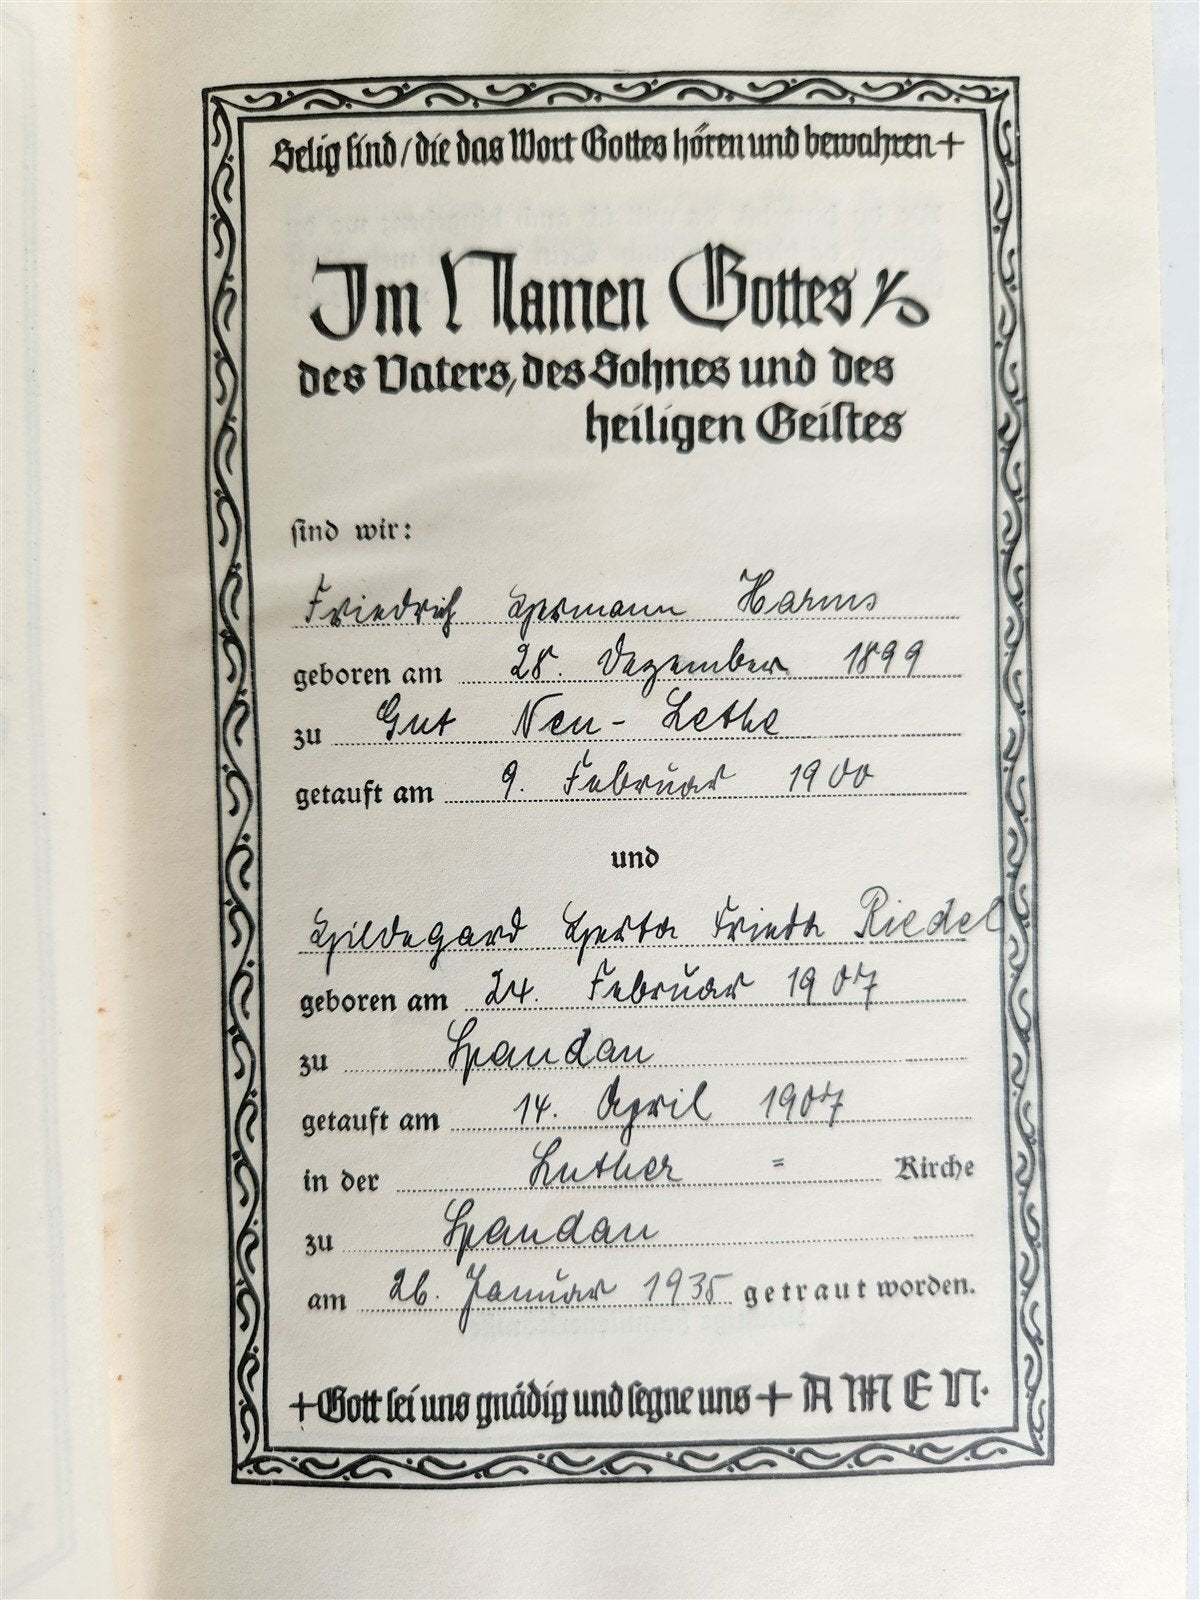 Selig sind / die das Wort Gottes hören und bewahren +
Im Namen Gottes
des Vaters, des Sohnes und des
heiligen Geistes
sind wir:
Friedrich Hermann Harms
geboren am 28. Dezember 1899
zu Gut Neu-Lethe
getauft am 9. Februar 1900
und
Hildegard Herta Frieda Riedel
geboren am 24. Februar 1907
zu Spandau
getauft am 14. April 1907
in der Luther = Kirche
zu Spandau
am 26. Januar 1935 getraut worden.
+ Gott sei uns gnädig und segne uns + AMEN.